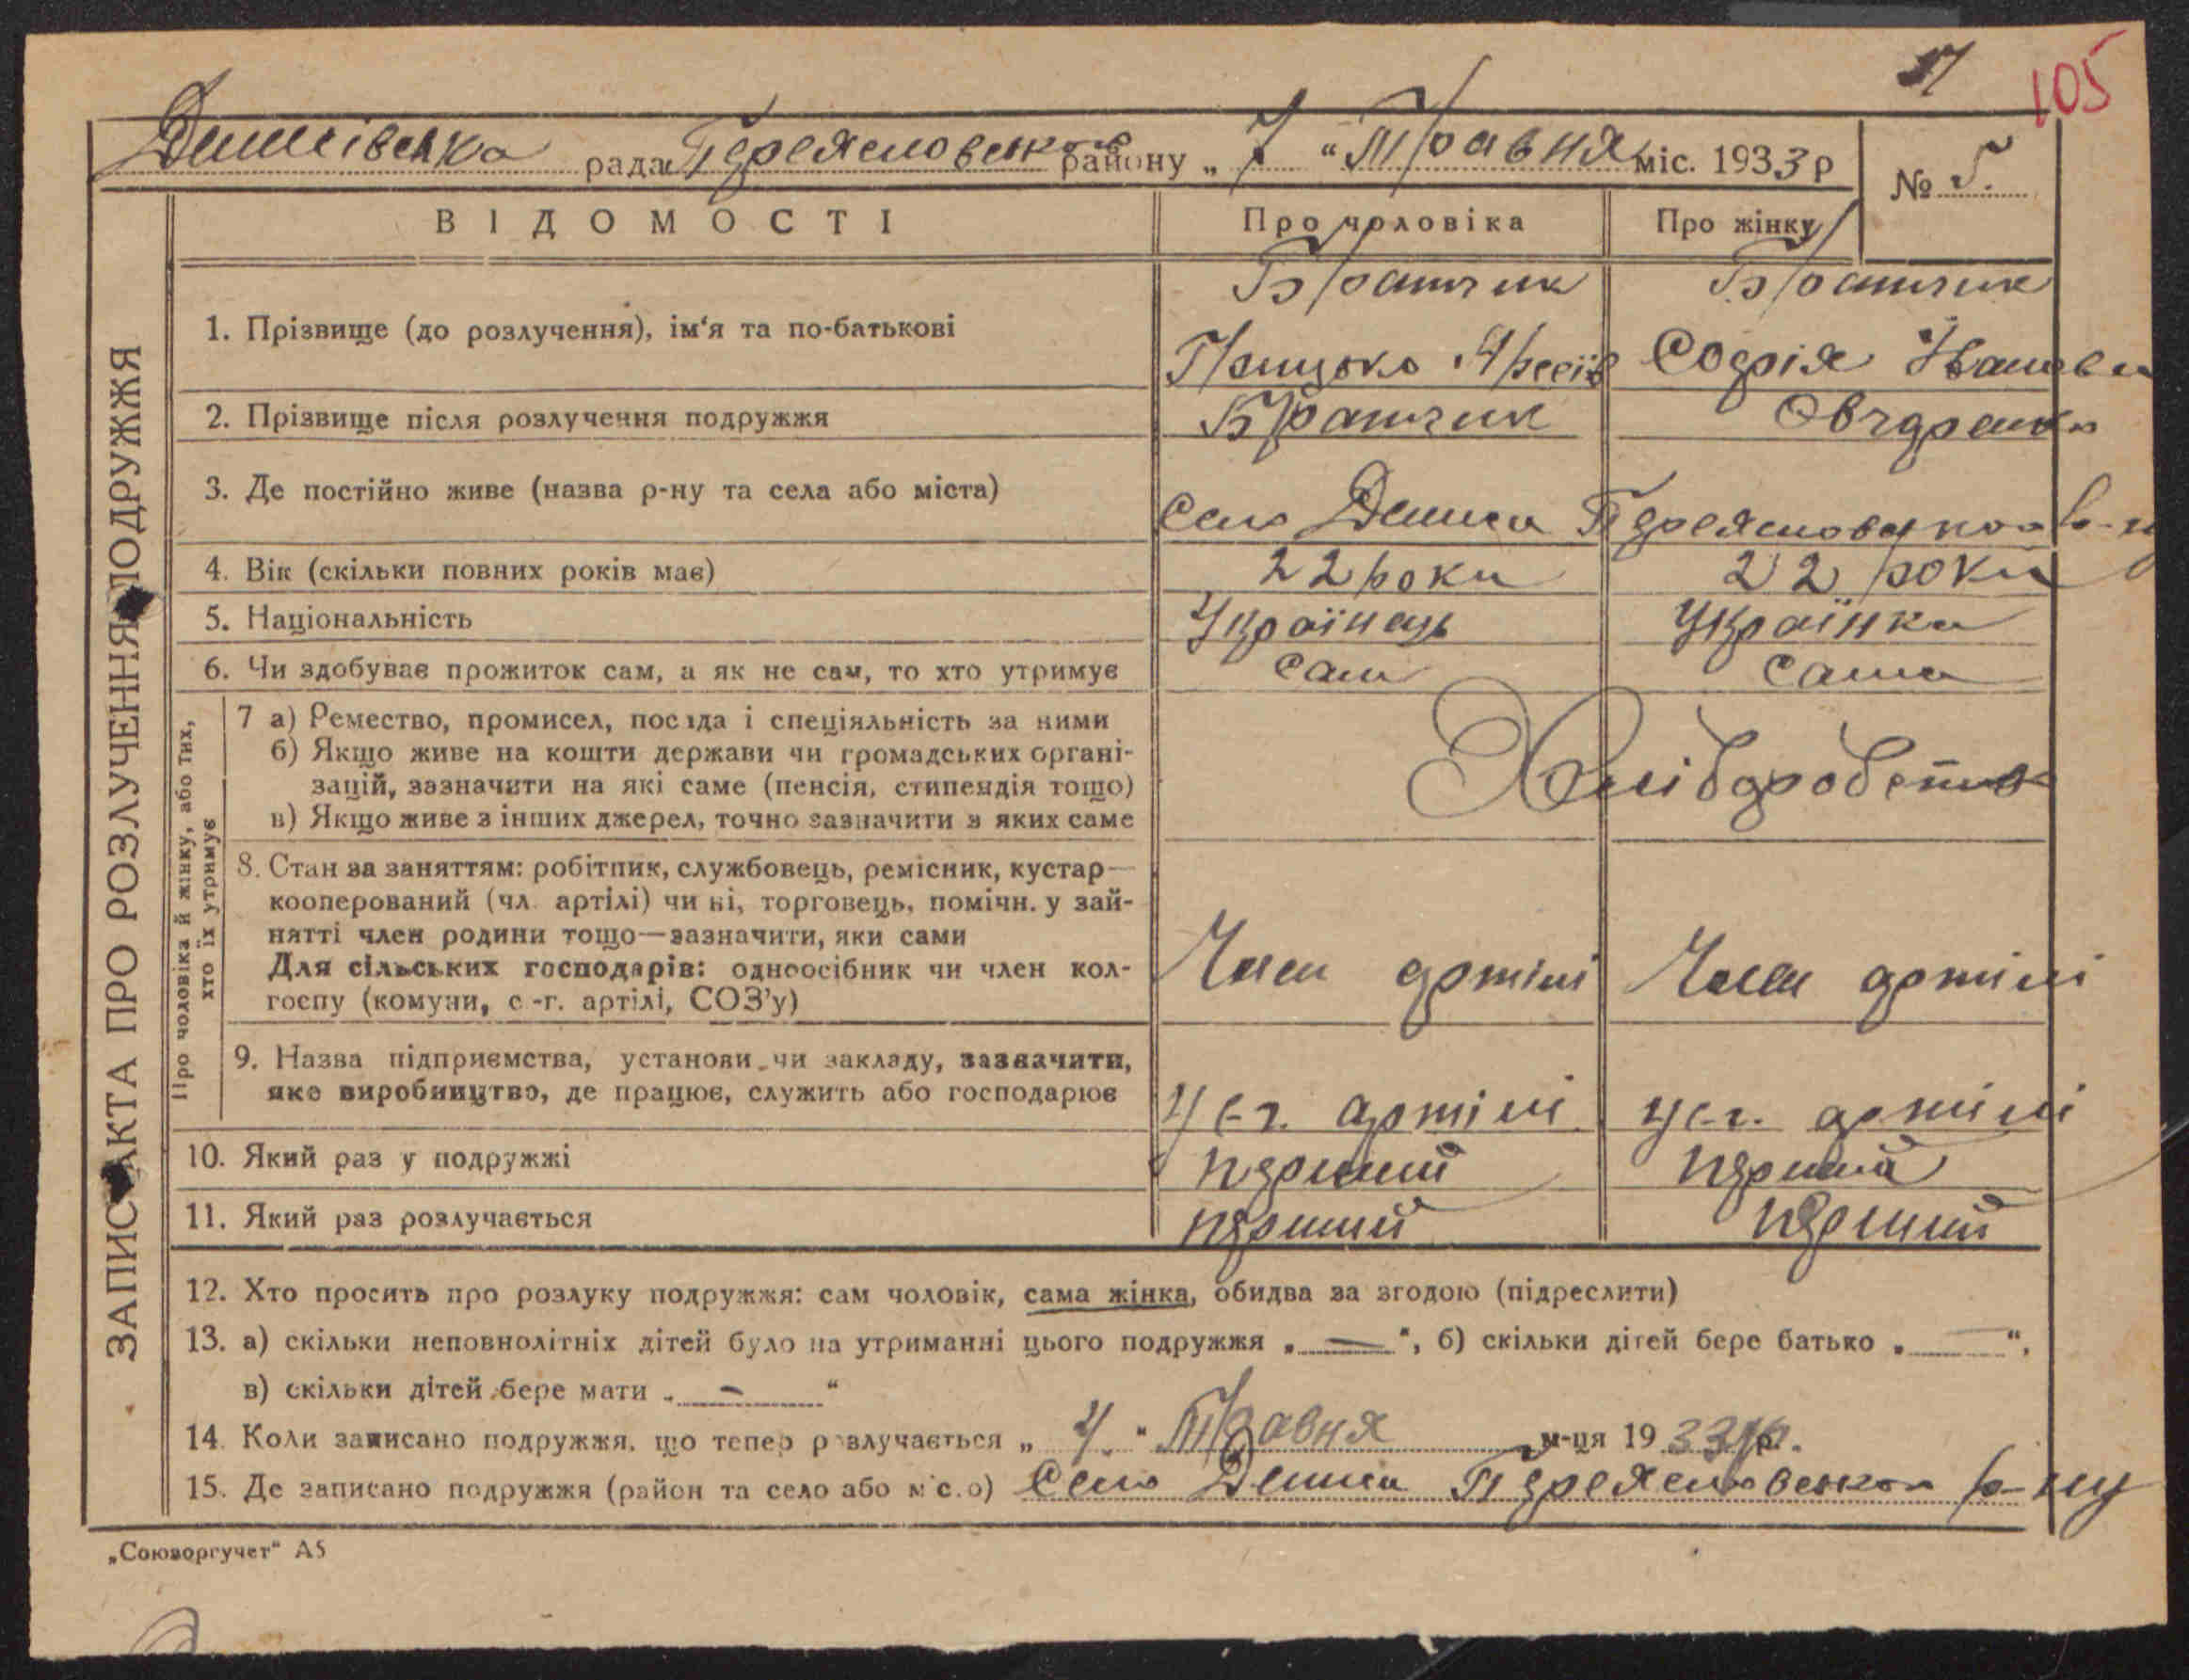 105
Демківська рада Переяславськ району „ 7 “ Травня міс. 1933 р
№ 5.
ВІДОМОСТІ
Про чоловіка
Про жінку
1. Прізвище (до розлучення), ім‘я та по-батькові
Братчик
Грицько
Братчик
Софія Іванов
2. Прізвище після розлучення подружжя
Братчик
3. Де постійно живе (назва р-ну та села або міста)
село р-ну
4. Вік (скільки повних років має)
22 роки
22 роки
5. Національність
Українець
Українка
6. Чи здобуває прожиток сам, а як не сам, то хто утримує
сам
сама
Про чоловіка й жінку, або тих,
хто їх утримує
7 а) Ремество, промисел, посада і спеціяльність за ними
б) Якщо живе на кошти держави чи громадських органі-
зацій, зазначити на які саме (пенсія, стипендія тощо)
в) Якщо живе з інших джерел, точно зазначити з яких саме
Хліборобство
8. Стан за заняттям: робітник, службовець, ремісник, кустар—
кооперований (чл. артілі) чи ні, торговець, помічн. у зай-
нятті член родини тощо—зазначити, яки сами
Для сільських господарів: одноосібник чи член кол-
госпу (комуни, с.-г. артілі, СОЗ’у)
Член артілі
Член артілі
9. Назва підприємства, установи чи закладу, зазначити,
яке виробництво, де працює, служить або господарює
У с-г. артілі
У с-г. артілі
10. Який раз у подружжі
перший
перший
11. Який раз розлучається
перший
перший
12. Хто просить про розлуку подружжя: сам чоловік, сама жінка, обидва за згодою (підреслити)
13. а) скільки неповнолітніх дітей було на утриманні цього подружжя „ — “, б) скільки дітей бере батько „ — “,
в) скільки дітей бере мати „ — “
14. Коли записано подружжя, що тепер розлучається „ “ Травня м-ця 19 33 р.
15. Де записано подружжя (район та село або місто) село р-ну
ЗАПИС АКТА ПРО РОЗЛУЧЕННЯ ПОДРУЖЖЯ
„Союзоргучет“ А5